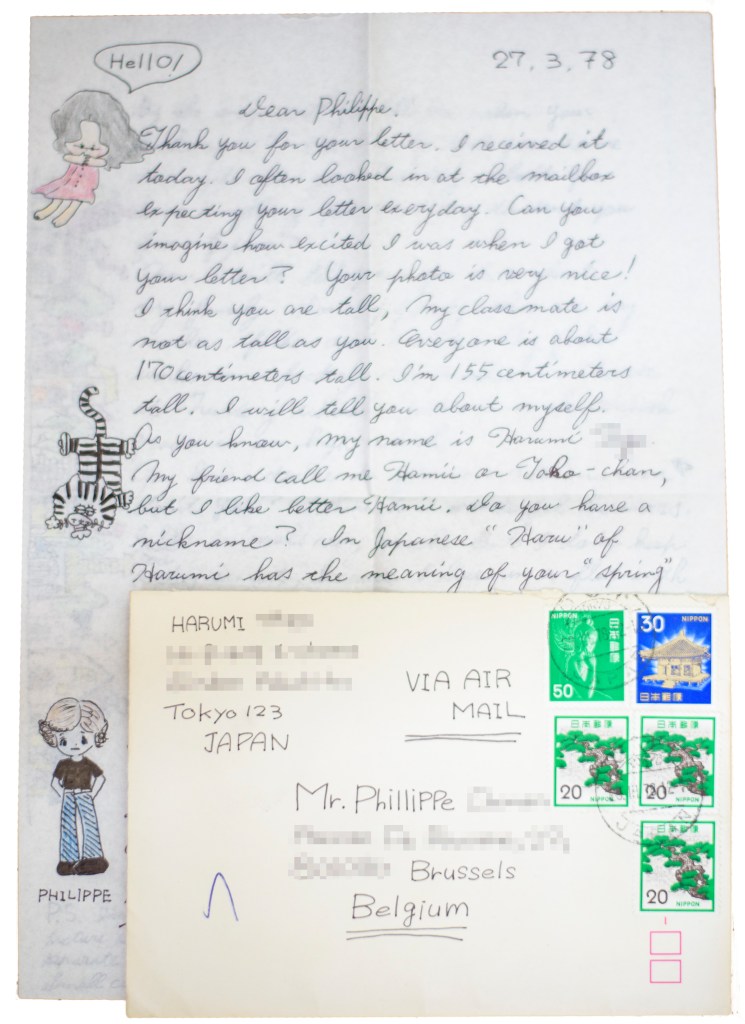 Hello!
27.3.78
Dear Philippe.
Thank you for your letter. I received it
today. I often looked in at the mailbox
expecting your letter everyday. Can you
imagine how excited I was when I got
your letter? Your photo is very nice!
I think you are tall, My classmate is
not as tall as you. Everyone is about
170 centimeters tall. I'm 155 centimeters
tall. I will tell you about myself.
As you know, my name is Harumi
My friend call me Hamii or Toko-chan,
but I like better Hamii. Do you have a
nickname? In Japanese "Haru" of
Harumi has the meaning of your "spring"
PHILIPPE
HARUMI
Tokyo 123
JAPAN
VIA AIR
MAIL
Mr. Phillippe
Brussels
Belgium
NIPPON
日本郵便
50
30
NIPPON
日本郵便
日本郵便
20
NIPPON
日本郵便
20
NIPPON
日本郵便
20
NIPPON